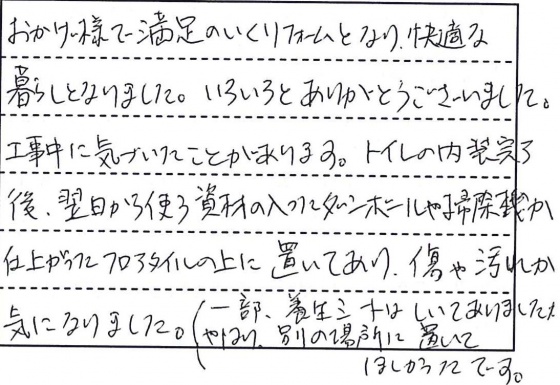 おかげ様で満足のいくリフォームとなり、快適な
暮らしとなりました。いろいろとありがとうございました。
工事中に気づいたことがあります。トイレの内装完了
後、翌日から使う資材の入ったダンボールや掃除機が
仕上がったフロアタイルの上に置いてあり、傷や汚れが
気になりました。(一部、養生シートはしいてありましたが
やはり、別の場所に置いて
ほしかったです。